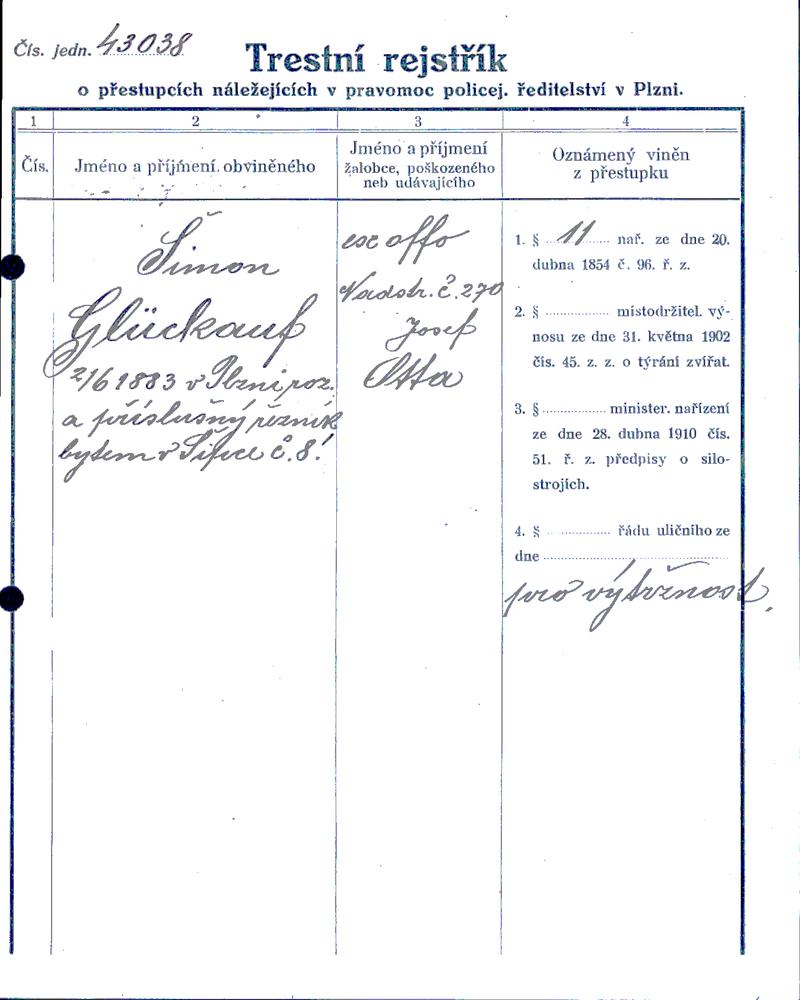 Čís. jedn. 43038
Trestní rejstřík
o přestupcích náležejících v pravomoc policej. ředitelství v Plzni.
1 2 3 4
Čís.
Jméno a příjmení obviněného
Jméno a příjmení
žalobce, poškozeného
neb udávajícího
Oznámený viněn
z přestupku
Šimon
Glückauf
2/6 1883 v Plzni roz.
a příslušný řezník
bytem v č. 8.
ex offo
Nadstr. č. 270
Josef
Otta
1. § 11 nař. ze dne 20.
dubna 1854 č. 96. ř. z.
2. § místodržitel. vý-
nosu ze dne 31. května 1902
čís. 45. z. z. o týrání zvířat.
3. § minister. nařízení
ze dne 28. dubna 1910 čís.
51. ř. z. předpisy o silo-
strojích.
4. § řádu uličního ze
dne
pro výtržnost.